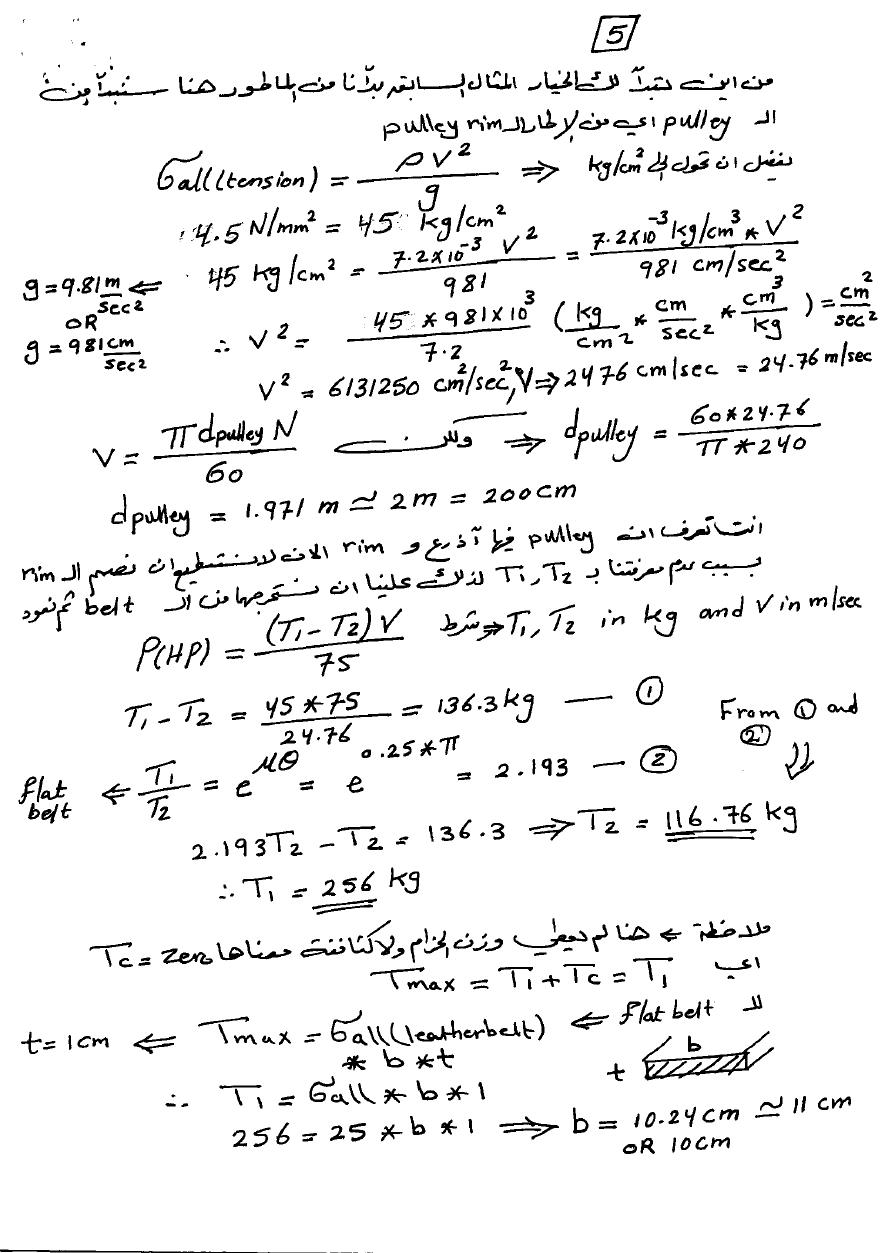 5
من اين نبدأ لك الخيار المثال السابق بدأنا من الماطور هنا سنبدأ من
الـ pulley اي من الإطار الـ pulley rim
σall(tension) = ρV²/g ⇒ نفضل ان تحول الى kg/cm²
4.5 N/mm² = 45 kg/cm²
g=9.81 m/sec² ⇐ 45 kg/cm² = 7.2x10⁻³ V²/981 = 7.2x10⁻³ kg/cm³ * V²/981 cm/sec²
OR
g=981 cm/sec² ∴ V² = 45 * 981x10³/7.2 (kg/cm² * cm/sec² * cm³/kg) = cm²/sec²
V² = 6131250 cm²/sec², V ⇒ 2476 cm/sec = 24.76 m/sec
V = π dpulley N/60 ولكن ⇒ dpulley = 60*24.76/π*240
dpulley = 1.971 m ≃ 2m = 200cm
انت تعرف ان pulley فيها آذرع و rim الان لا نستطيع ان نصمم الـ rim
بسبب عدم معرفتنا بـ T₁, T₂ لذلك علينا ان نستخرجها من الـ belt ثم نعود
P(HP) = (T₁-T₂)V/75 شرط ⇒ T₁, T₂ in kg and V in m/sec
T₁-T₂ = 45*75/24.76 = 136.3kg — ①
From ① and ②
flat belt ⇐ T₁/T₂ = e^μθ = e^0.25*π = 2.193 — ②
2.193T₂ - T₂ = 136.3 ⇒ T₂ = 116.76 kg
∴ T₁ = 256 kg
ملاحظة ⇐ هنا لم يعطي وزن الحزام ولا كثافته معناها Tc = zero
اي Tmax = T₁ + Tc = T₁
t=1cm ⇐ Tmax = σall(leather belt) ⇐ flat belt للـ
* b * t
b
t
∴ T₁ = σall * b * 1
256 = 25 * b * 1 ⇒ b = 10.24cm ≃ 11 cm
OR 10cm